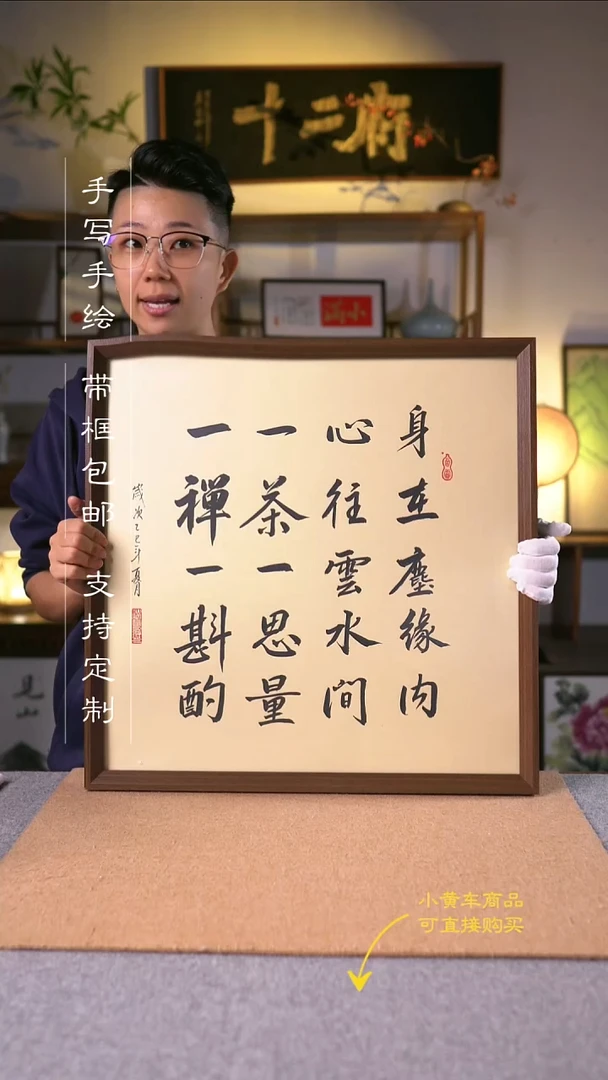 十二府
小满
手写手绘 带框包邮 支持定制
身在塵緣內
心往雲水間
一茶一思量
一禪一斟酌
歲次乙巳年夏月
見山
小黄车商品
可直接购买